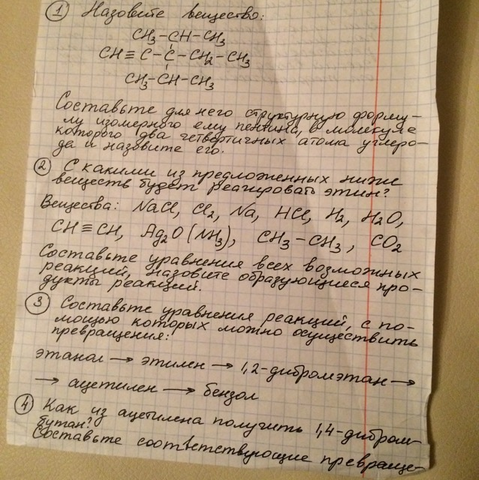 ① Назовите вещество:
CH₃-CH-CH₃
CH≡C-C-CH₂-CH₃
CH₃-CH-CH₃
Составьте для него структурную форму-
лу изомерного ему пентина, в молекуле
которого два четвертичных атома углеро-
да и назовите его.
② С какими из предложенных ниже
веществ будет реагировать этин?
Вещества: NaCl, Cl₂, Na, HCl, H₂, H₂O,
CH≡CH, Ag₂O(NH₃), CH₃-CH₃, CO₂
Составьте уравнения всех возможных
реакций, назовите образующиеся про-
дукты реакций.
③ Составьте уравнения реакций, с по-
мощью которых можно осуществить
превращения:
этанол → этилен → 1,2-дибромэтан →
→ ацетилен → бензол
④ Как из ацетилена получить 1,4-дибром-
бутан?
Составьте соответствующие превраще-